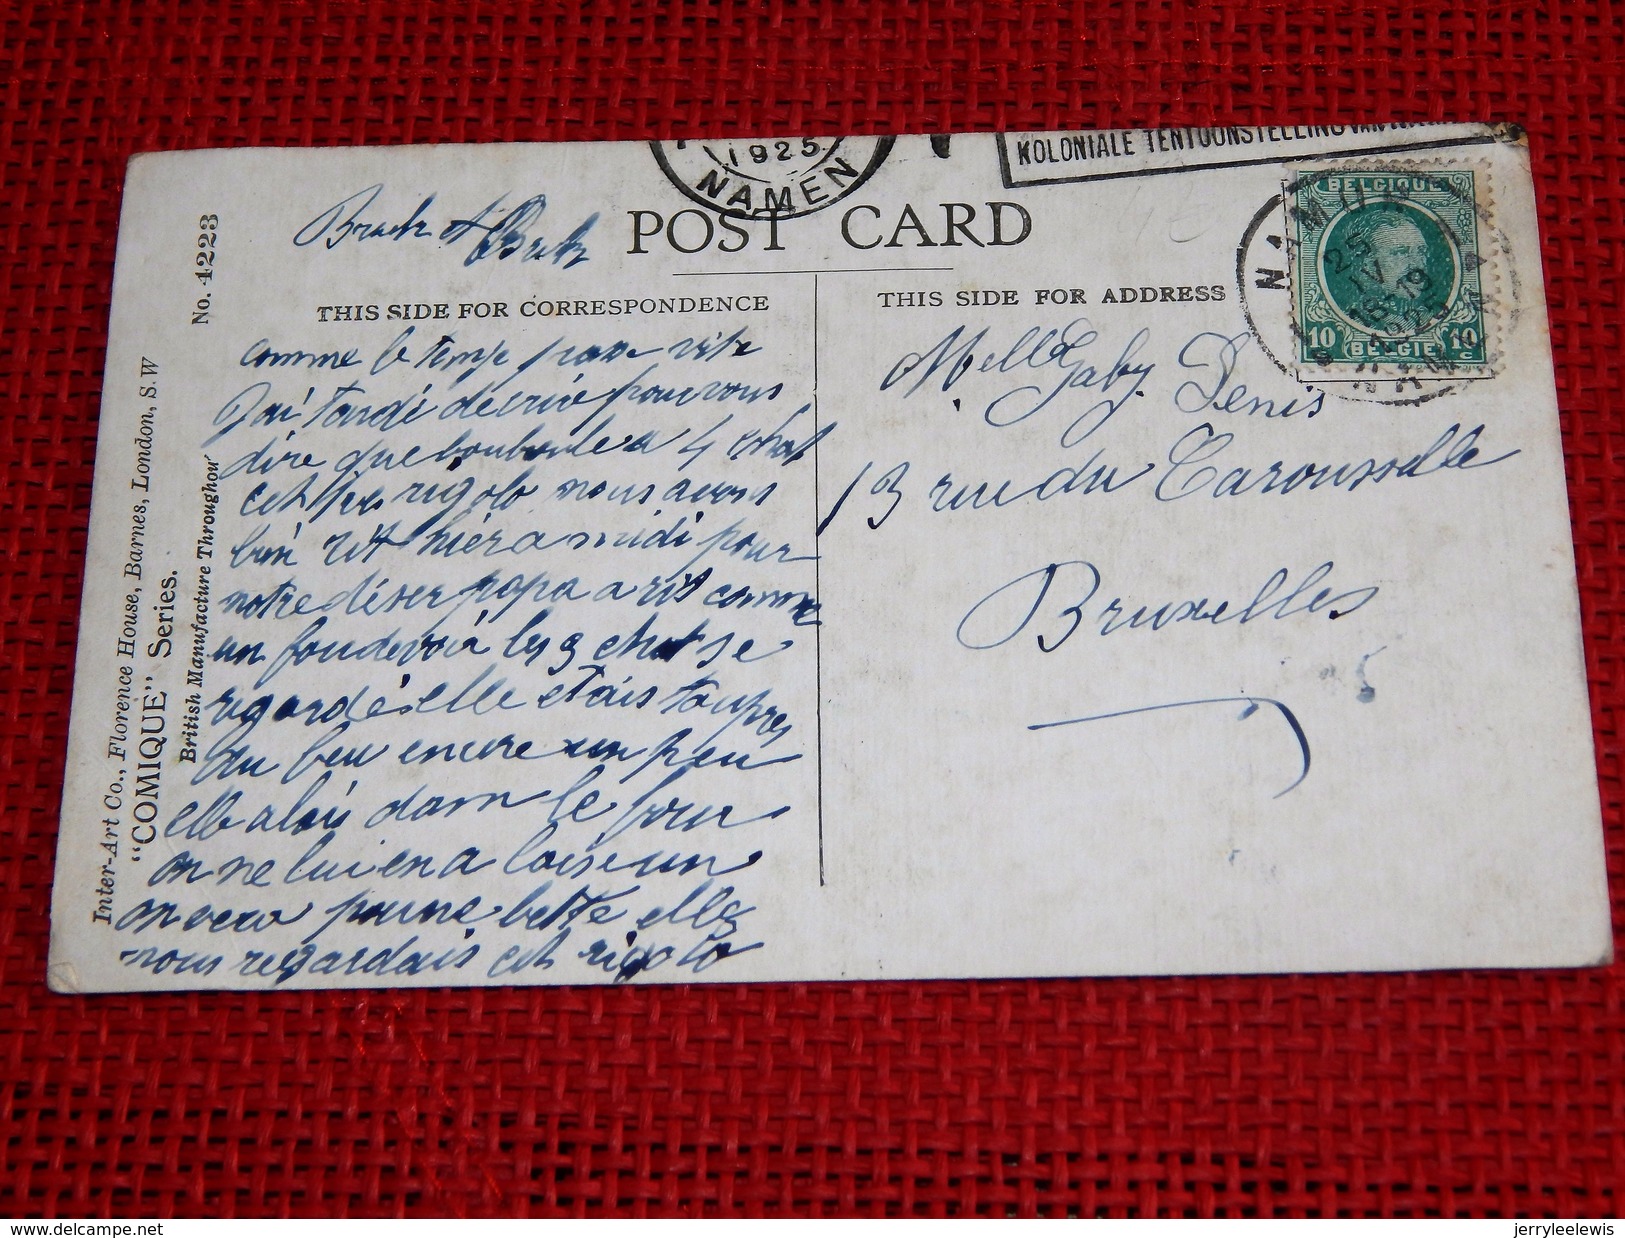 1925
NAMEN
KOLONIALE TENTOONSTELLING VAN
POST CARD
BELGIQUE
NAMUR
25
IV
18-19
1925
10 10
BELGIE
C C
NAMEN
THIS SIDE FOR CORRESPONDENCE
THIS SIDE FOR ADDRESS
comme le temp passe vite
J'ai tardé décrire pour vous
dire que bouboule a 4 chat
cet tres rigolo nous avons
bien rit hier a midi pour
notre déser papa a rit comme
un fou de voir les 3 chat se
regardé elle etais toupres
du feu encore un peu
elle alais dans le four
on ne lui en a laise un
on vera pour une bette elle
nous regardais cet rigolo
Melle Gaby Denis
13 rue du Carousselle
Bruxelles
Inter-Art Co., Florence House, Barnes, London, S.W
"COMIQUE" Series.
British Manufacture Throughout
No. 4223
delcampe.net
jerryleelewis